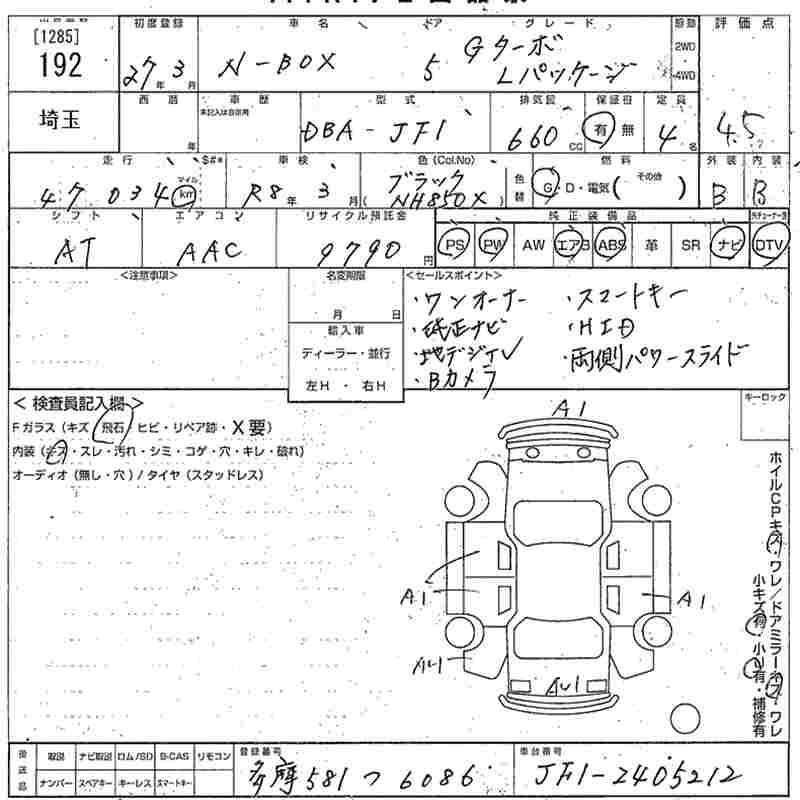 [1285]
192
初度登録
27年3月
車名
N-BOX
ドア
5
グレード
Gターボ
Lパッケージ
駆動
2WD
4WD
評価点
4.5
埼玉
西暦
年
車歴
未記入は自家用
型式
DBA-JF1
排気量
660cc
保証書
有 無
定員
4名
走行
47034
マイル
km
$#*
車検
R8年3月
色(Col.No)
ブラック
(NH850X)
色替
燃料
G・D・電気( その他 )
外装
B
内装
B
シフト
AT
エアコン
AAC
リサイクル預託金
9790円
純正装備品
PS PW AW エアB ABS 革 SR ナビ DTV
<注意事項>
名変期限
月 日
輸入車
ディーラー・並行
左H ・ 右H
<セールスポイント>
・ワンオーナー ・スマートキー
・純正ナビ ・HID
・地デジTV ・両側パワースライド
・Bカメラ
キーロック
<検査員記入欄>
Fガラス(キズ・飛石・ヒビ・リペア跡・X要)
内装(キズ・スレ・汚れ・シミ・コゲ・穴・キレ・破れ)
オーディオ(無し・穴)/タイヤ(スタッドレス)
A1
A1
A1
AU1
AU1
ホイルCPキズ・ワレ/ドアミラーキズ・ワレ
小キズ有・小U有・補修有
後送品
取説 ナビ取説 ロム/SD B-CAS リモコン
ナンバー スペアキー キーレス スマートキー
登録番号
多摩581つ6086
車台番号
JF1-2405212